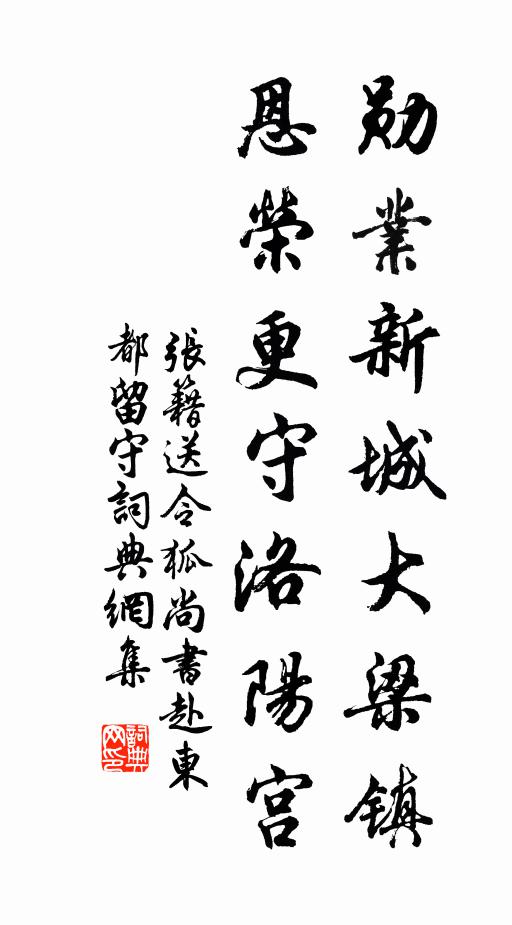 勛業新城大梁镇
恩榮更守洛陽宫
張籍送令狐尚書赴東
都留守詞典網集
詞典
网印